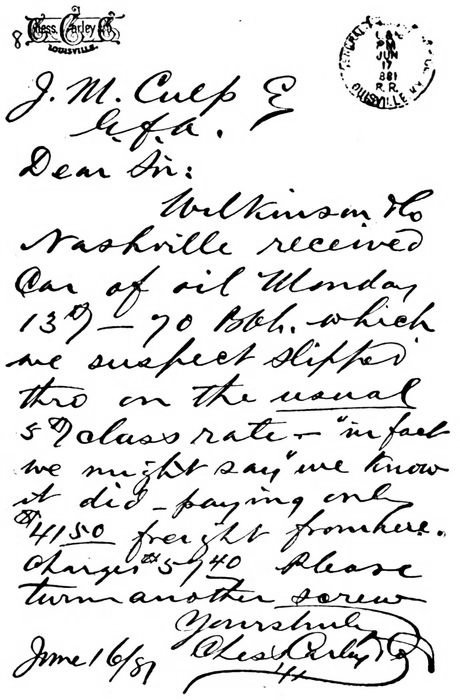 Chess, Carley Co
LOUISVILLE.
8
GENERAL
L & N
PM
JUN
17
881
R. R.
LOUISVILLE KY
J. M. Culp E
G.F.A.
Dear Sir:
Wilkinson & Co
Nashville received
Car of oil Monday
13th – 70 Bbls. which
we suspect slipped
thro on the usual
5th class rate – "in fact
we might say" we know
it did – paying only
$41 50 freight from here.
Charges $57 40 Please
turn another screw
Yours truly
Chess Carley Co
June 16/81